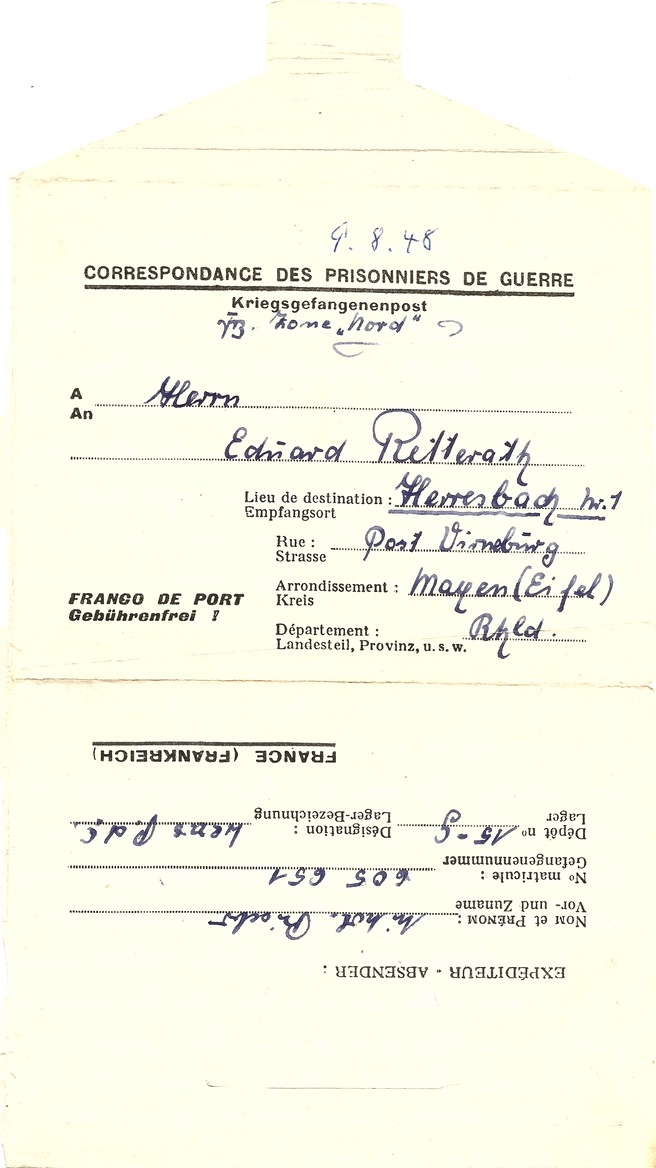 9. 8. 48
CORRESPONDANCE DES PRISONNIERS DE GUERRE
Kriegsgefangenenpost
frz. Zone „Nord“
A
An Herrn
Eduard Retterath
Lieu de destination : Herresbach Nr. 1
Empfangsort
Rue : Post Virneburg
Strasse
Arrondissement : Mayen (Eifel)
Kreis
FRANCO DE PORT
Gebührenfrei !
Département : Rhld.
Landesteil, Provinz, u. s. w.
EXPÉDITEUR - ABSENDER :
NOM et PRÉNOM :
Vor- und Zuname
No matricule : 605 651
Gefangenennummer
Dépôt no 15-9 Désignation : Lens P.d.C.
Lager Lager-Bezeichnung
FRANCE (FRANKREICH)